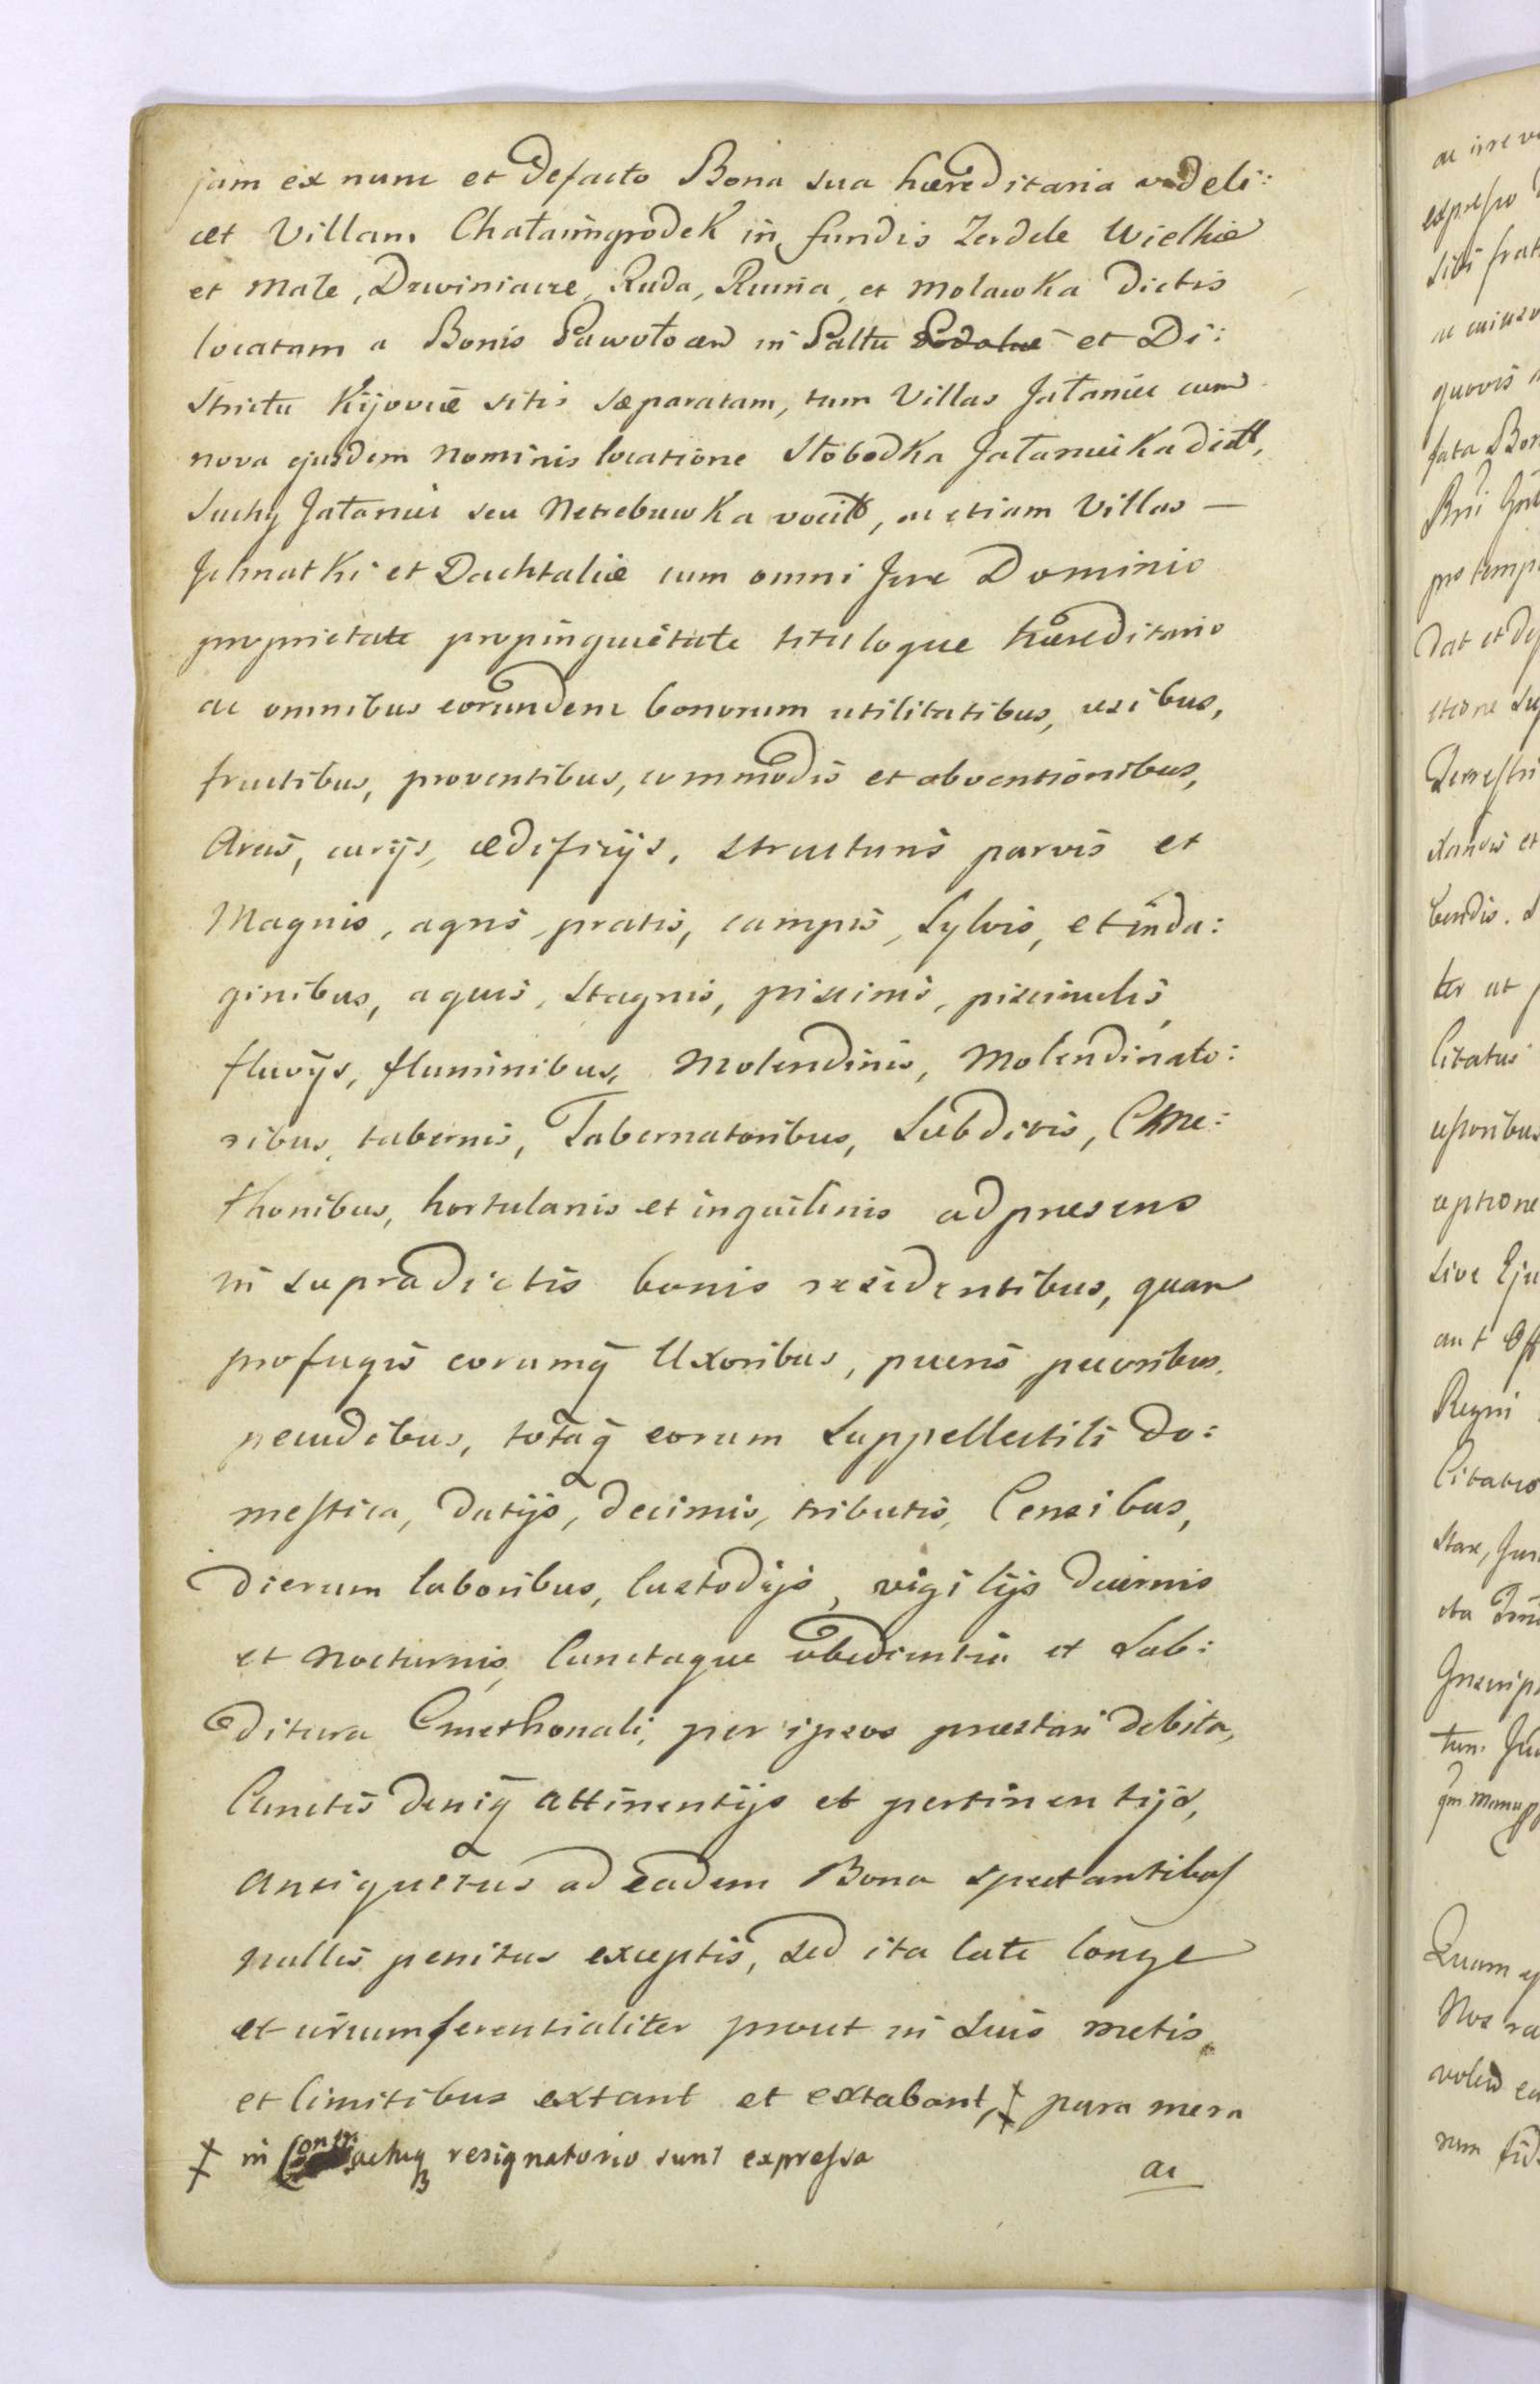 jam ex nunc et defacto Bona sua hæreditaria videli:
cet Villam Chałaimgrodek in fundis Zerdele Wielkie
et Małe, Drwiniacze, Ruda, Ruina, et Molawka dictis
locatam a Bonis Pawołocen in Paltu Podoliæ et Di:
strictu Kijoviæ sitis sæparatam, tum Villas Jałaniec cum
nova ejusdem nominis locatione Słobodka Jałaniecka dictt,
Suchy Jałaniec seu Netrebuwka vocitt, ac etiam Villas —
Jchnatki et Dachtalie cum omni Jure Dominio
proprietate propinquietate tituloque hæreditario
ac omnibus eorundem bonorum utilitatibus, usibus,
fructibus, proventibus, commodis et obventionibus,
Areis, curijs, ædificijs, structuris parvis et
Magnis, agris, pratis, campis, Sylvis, et inda:
ginibus, aquis, stagnis, piscinis, piscinulis,
fluvijs, fluminibus, Molendinis, Molendinato:
ribus, tabernis, Tabernatoribus, Subditis, Cme:
thonibus, hortulanis et inquilinis ad presens
in supradictis bonis residentibus, quam
profugis eorumq̃ Uxoribus, pueris pecoribus,
pecudibus, totaq̃ eorum suppellectili do:
mestica, datijs, decimis, tributis, Censibus,
dierum laboribus, Custodijs, vigilijs diurnis
et nocturnis, Cunctaque obedientia et Sub:
ditura Cmethonali, per ipsos præstari debita,
Cunctis deniq̃ attinentijs et pertinentijs,
antiquitus ad eadem Bona spectantibus
nullis penitus exceptis, sed ita late longe
et circumferentialiter prout in suis metis,
et limitibus extant et extabant, ‡ pura mera
‡ in Contractuq resignatorio sunt expressa
ac
ac irrevo
expresso
sibi frat
quovis
fata Bon
pro temp
dat et de
ctione
Citatus
eptione
sive Eju
Regni
Citatio
stare,
Quum
Nos